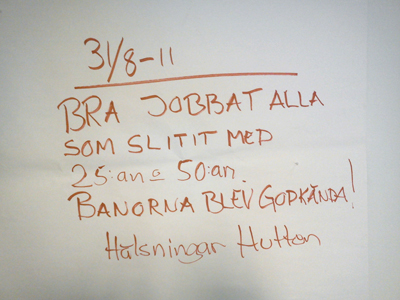 31/8-11
BRA JOBBAT ALLA
SOM SLITIT MED
25:an o 50:an.
BANORNA BLEV GODKÄNDA!
Hälsningar Hutton